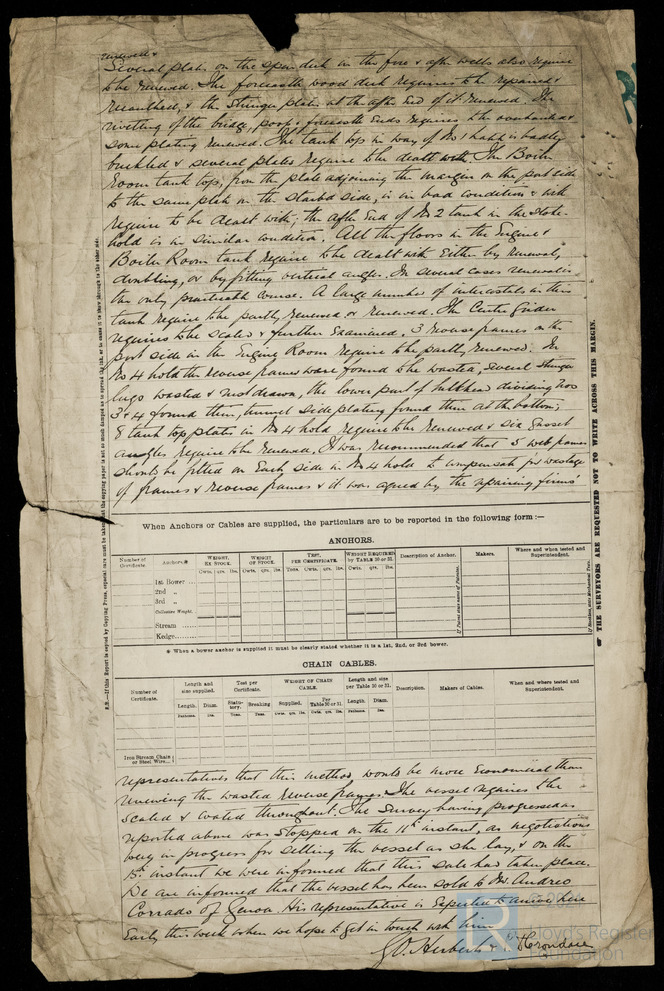 renewed &
Several plates on the spar deck in the fore & after wells also require
to be renewed. The forecastle wood deck requires to be repaired &
recaulked, & the stringer plates at the after end of it renewed. The
riveting of the bridge, poop & forecastle ends requires to be overhauled &
some plating renewed. The tank top in way of No 1 hold is badly
buckled & several plates require to be dealt with. The Boiler
Room tank top, from the plate adjoining the margin on the port side
to the same plate on the starbd side, is in bad condition & will
require to be dealt with; the after end of No 2 tank in the stoke-
hold is in similar condition. All the floors in the Engine &
Boiler Room tank require to be dealt with either by renewal,
doubling, or by fitting vertical angles. In several cases renewal is
the only practicable course. A large number of intercostals in this
tank require to be partly renewed or renewed. The Centre Girder
requires to be scaled & further examined. 3 reverse frames on the
port side in the Engine Room require to be partly renewed. In
No 4 hold the reverse frames were found to be wasted, several stringer
lugs wasted & not drawn, the lower part of bulkhead dividing Nos
3 & 4 found thin, tunnel side plating found thin at the bottom;
8 tank top plates in No 4 hold require to be renewed & six gusset
angles require to be renewed. It was recommended that 5 web frames
should be fitted on each side in No 4 hold to compensate for wastage
of frames & reverse frames & it was agreed by the repairing firms'
When Anchors or Cables are supplied, the particulars are to be reported in the following form :—
ANCHORS.
Number of Certificate.
Anchors.*
WEIGHT, EX STOCK.
WEIGHT OF STOCK.
TEST, PER CERTIFICATE.
WEIGHT REQUIRED by TABLE 30 or 31.
Description of Anchor.
Makers.
Where and when tested and Superintendent.
Cwts. qrs. lbs.
Cwts. qrs. lbs.
Tons. Cwts. qrs. lbs.
Cwts. qrs. lbs.
1st Bower ...
2nd „
3rd „
Collective Weight.
Stream ...
Kedge...
* When a bower anchor is supplied it must be clearly stated whether it is a 1st, 2nd, or 3rd bower.
CHAIN CABLES.
Number of Certificate.
Length and size supplied.
Test per Certificate.
WEIGHT OF CHAIN CABLE.
Length and size per Table 30 or 31.
Description.
Makers of Cables.
When and where tested and Superintendent.
Length.
Diam.
Statutory.
Breaking
Supplied.
Per Table 30 or 31.
Length.
Diam.
Iron Stream Chain or Steel Wire...
representatives that this method would be more economical than
renewing the wasted reverse frames. The vessel requires to be
scaled & coated throughout. The survey having progressed as
reported above was stopped on the 11th instant, as negotiations
being in progress for selling the vessel as she lay, & on the
15th instant we were informed that this sale had taken place.
We are informed that the vessel has been sold to Mr. Andreo
Corrado of Genoa. His representative is expected to arrive here
Early this week when we hope to get in touch with him.
Herbert &
THE SURVEYORS ARE REQUESTED NOT TO WRITE ACROSS THIS MARGIN.
Lloyd's Register
Foundation